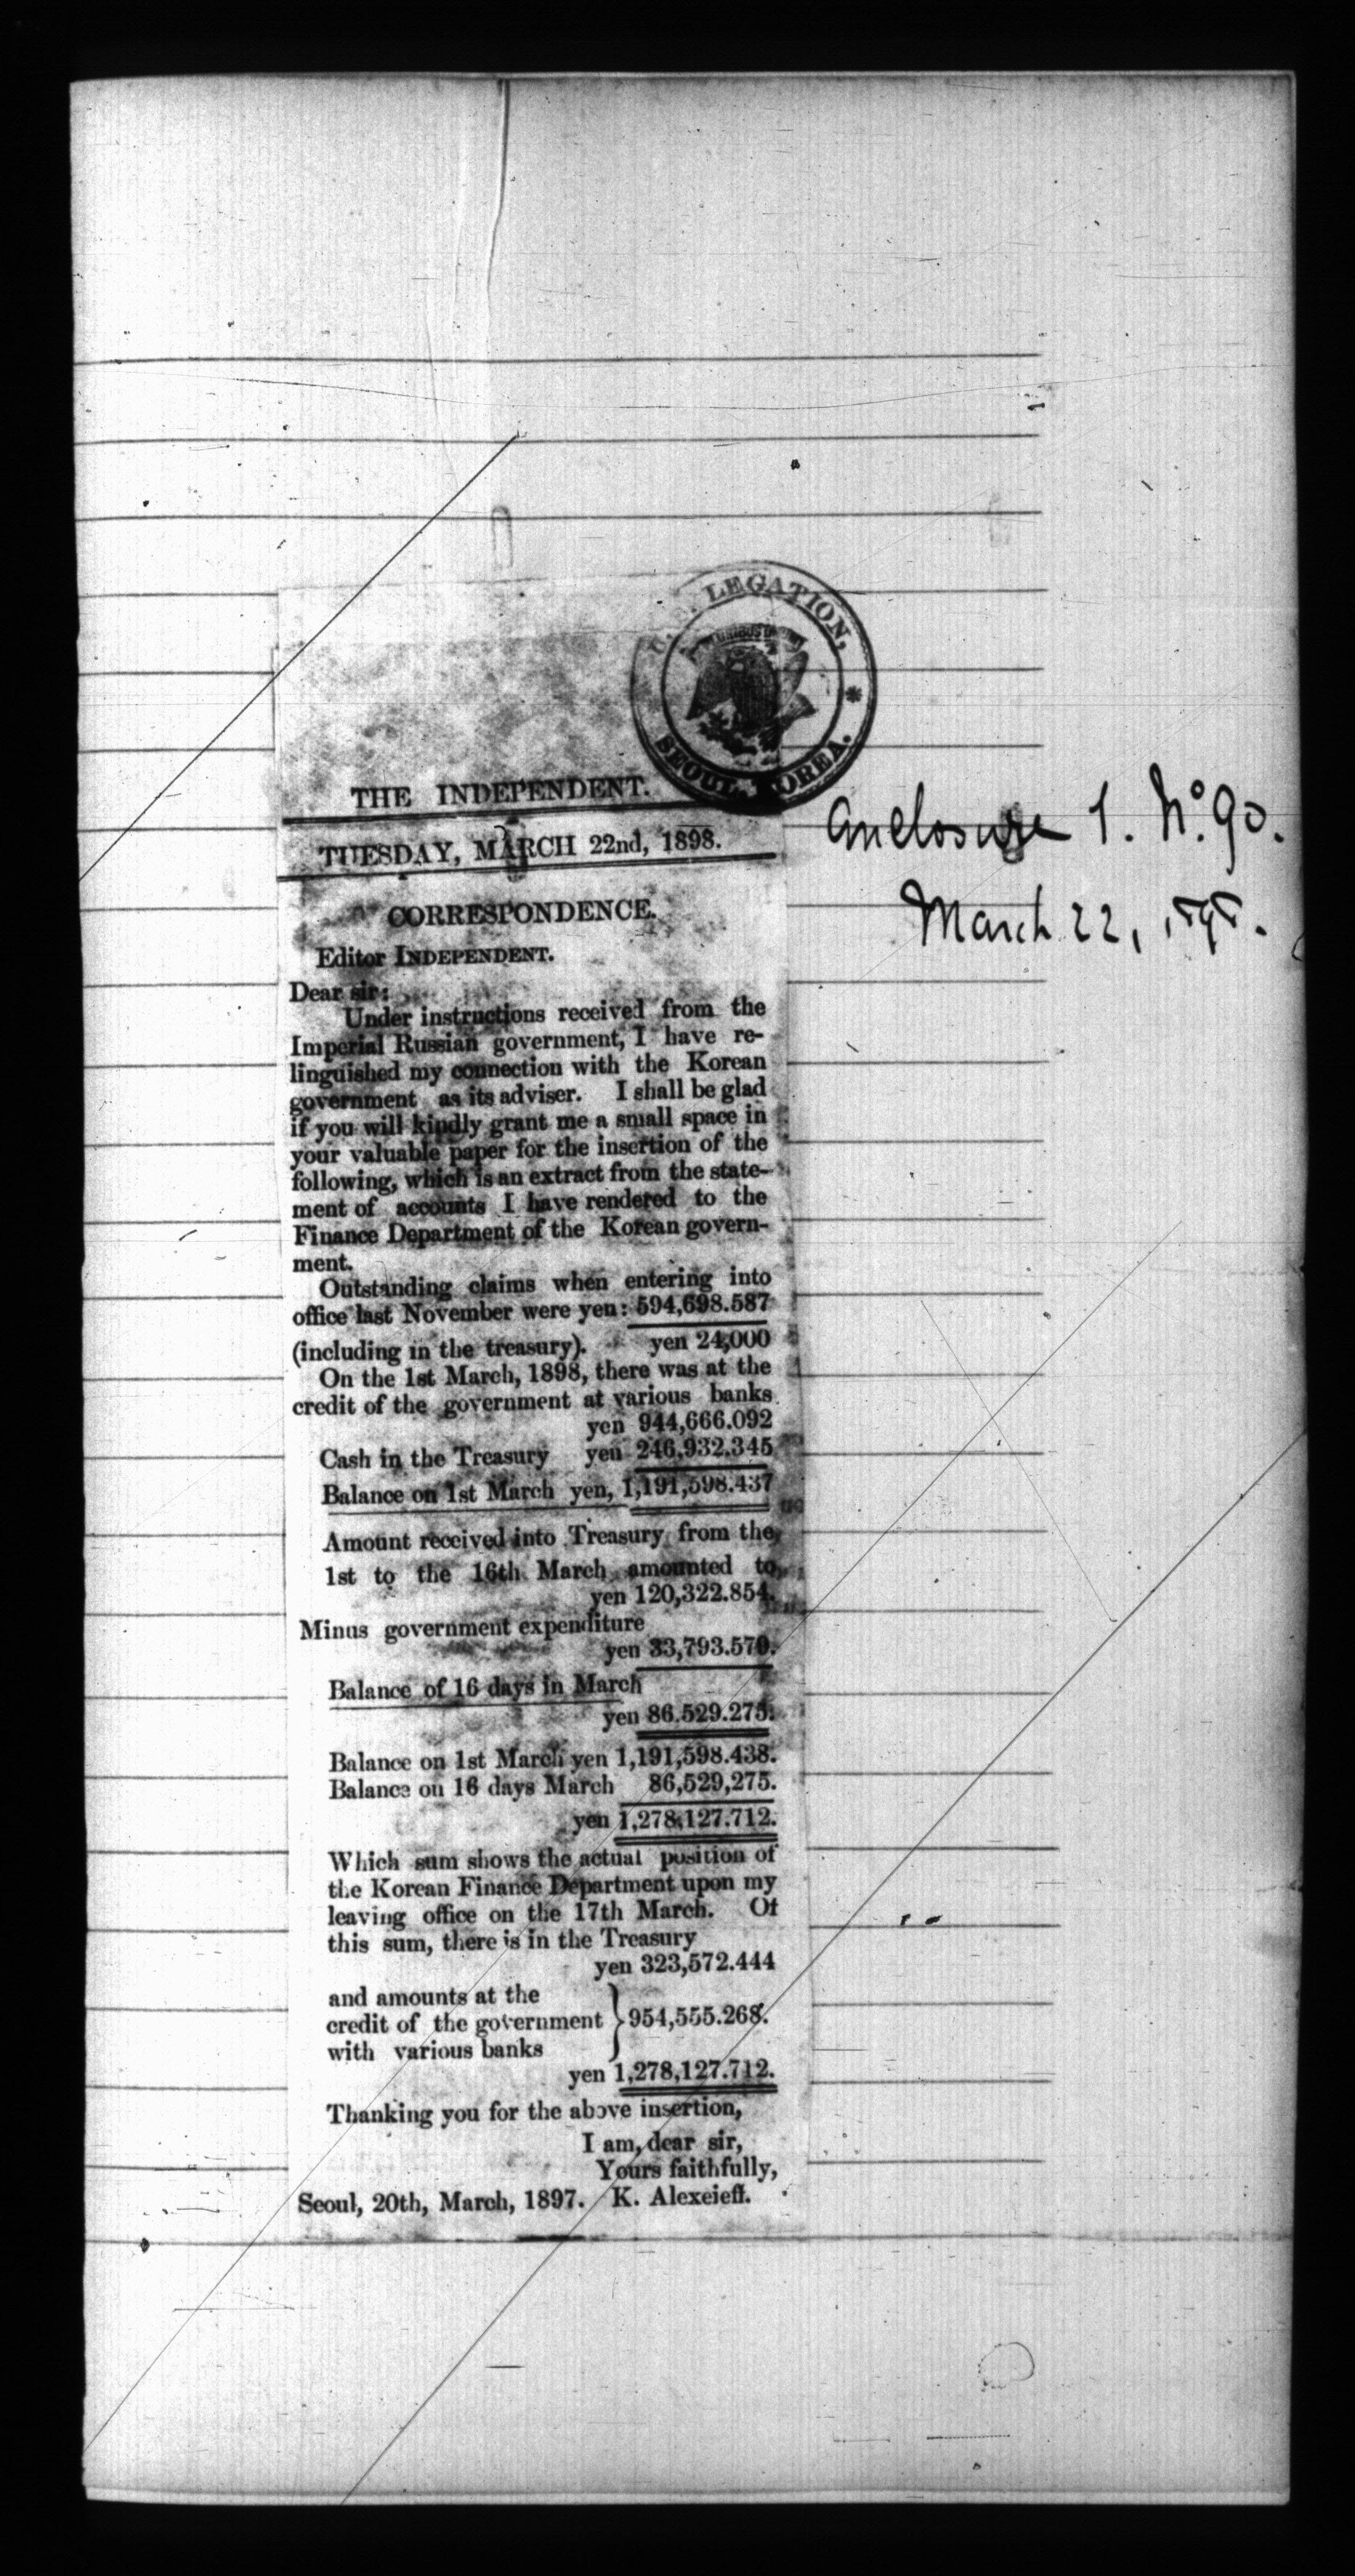 U. S. LEGATION,
SEOUL, KOREA.
THE INDEPENDENT.
TUESDAY, MARCH 22nd, 1898.
Enclosure 1. No. 90.
March 22, 1898.
CORRESPONDENCE.
Editor INDEPENDENT.
Dear sir:
Under instructions received from the
Imperial Russian government, I have re-
linguished my connection with the Korean
government as its adviser. I shall be glad
if you will kindly grant me a small space in
your valuable paper for the insertion of the
following, which is an extract from the state-
ment of accounts I have rendered to the
Finance Department of the Korean govern-
ment.
Outstanding claims when entering into
office last November were yen: 594,698.587
(including in the treasury). yen 24,000
On the 1st March, 1898, there was at the
credit of the government at various banks
yen 944,666.092
Cash in the Treasury yen 246,932.345
Balance on 1st March yen, 1,191,598.437
Amount received into Treasury from the
1st to the 16th March amounted to
yen 120,322.854.
Minus government expenditure
yen 33,793.579.
Balance of 16 days in March
yen 86.529.275.
Balance on 1st March yen 1,191,598.438.
Balance on 16 days March 86,529,275.
yen 1,278,127.712.
Which sum shows the actual position of
the Korean Finance Department upon my
leaving office on the 17th March. Of
this sum, there is in the Treasury
yen 323,572.444
and amounts at the
credit of the government } 954,555.268.
with various banks
yen 1,278,127.712.
Thanking you for the above insertion,
I am, dear sir,
Yours faithfully,
Seoul, 20th, March, 1897. K. Alexeieff.